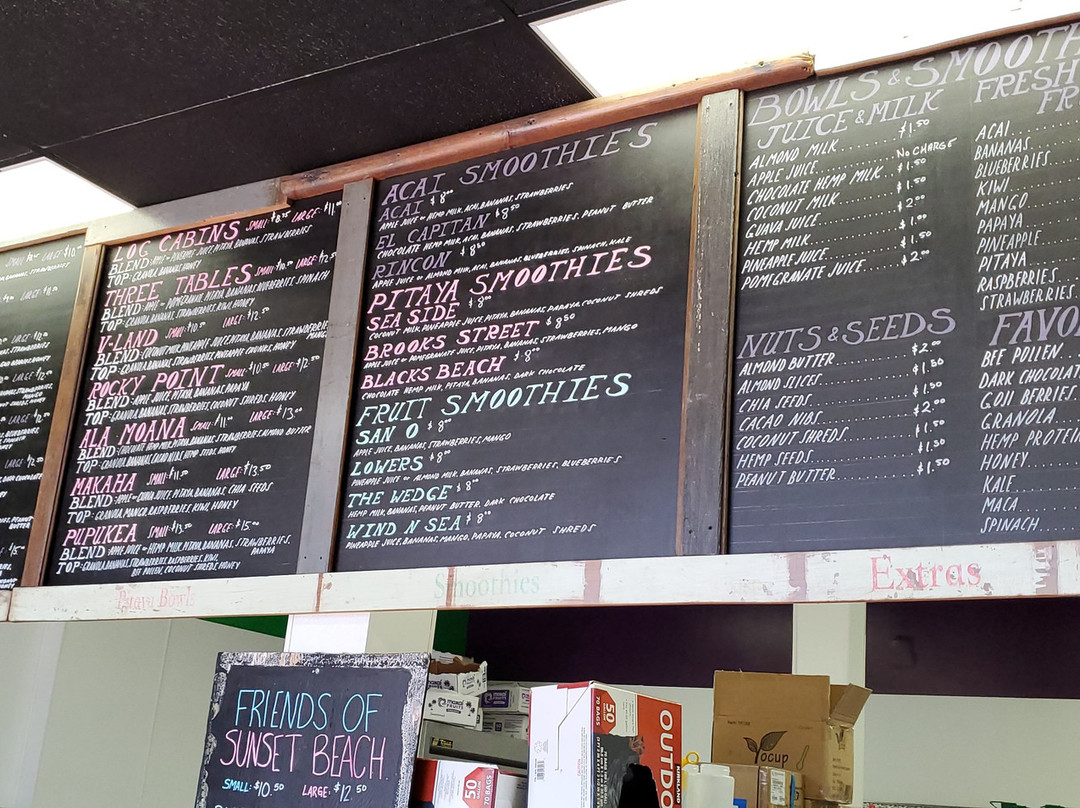 LOG CABINS SMALL: $8.25 LARGE: $11.00
BLEND: APPLE - PINEAPPLE JUICE, PITAYA, BANANAS, STRAWBERRIES
TOP: GRANOLA, BANANAS, HONEY
THREE TABLES SMALL: $10.50 LARGE: $12.50
BLEND: APPLE - POMEGRANATE, PITAYA, BANANAS, BLUEBERRIES, SPINACH
TOP: GRANOLA, BANANAS, STRAWBERRIES, KIWI, HONEY
V-LAND SMALL: $10.50 LARGE: $12.50
BLEND: COCONUT MILK, PINEAPPLE JUICE, PITAYA, BANANAS, STRAWBERRIES
TOP: GRANOLA, BANANAS, STRAWBERRIES, PINEAPPLE CHUNKS, HONEY
ROCKY POINT SMALL: $10.50 LARGE: $12.50
BLEND: APPLE JUICE, PITAYA, BANANAS, PAPAYA
TOP: GRANOLA, BANANAS, STRAWBERRIES, COCONUT SHREDS, HONEY
ALA MOANA SMALL: $11.00 LARGE: $13.00
BLEND: CHOCOLATE HEMP MILK, PITAYA, BANANAS, STRAWBERRIES, ALMOND BUTTER
TOP: GRANOLA, BANANAS, CACAO NIBS, HEMP SEEDS, HONEY
MAKAHA SMALL: $11.50 LARGE: $13.50
BLEND: APPLE - GUAVA JUICE, PITAYA, BANANAS, CHIA SEEDS
TOP: GRANOLA, MANGO, RASPBERRIES, KIWI, HONEY
PUPUKEA SMALL: $13.50 LARGE: $15.00
BLEND: APPLE JUICE - HEMP MILK, PITAYA, BANANAS, STRAWBERRIES, PAPAYA
TOP: GRANOLA, BANANAS, STRAWBERRIES, RASPBERRIES, KIWI,
BEE POLLEN, COCONUT SHREDS, HONEY
ACAI SMOOTHIES
ACAI $8.00
APPLE JUICE - HEMP MILK, ACAI, BANANAS, STRAWBERRIES
EL CAPITAN $8.50
CHOCOLATE HEMP MILK, ACAI, BANANAS, STRAWBERRIES, PEANUT BUTTER
RINCON $8.50
APPLE JUICE - ALMOND MILK, ACAI, BANANAS, BLUEBERRIES, SPINACH, KALE
PITAYA SMOOTHIES
SEA SIDE $8.00
COCONUT MILK, PINEAPPLE JUICE, PITAYA, BANANAS, PAPAYA, COCONUT SHREDS
BROOKS STREET $8.50
APPLE JUICE - POMEGRANATE JUICE, PITAYA, BANANAS, STRAWBERRIES, MANGO
BLACKS BEACH $8.00
CHOCOLATE HEMP MILK, PITAYA, BANANAS, DARK CHOCOLATE
FRUIT SMOOTHIES
SAN O $8.00
APPLE JUICE, BANANAS, STRAWBERRIES, MANGO
LOWERS $8.00
PINEAPPLE JUICE - ALMOND MILK, BANANAS, STRAWBERRIES, BLUEBERRIES
THE WEDGE $8.00
HEMP MILK, BANANAS, PEANUT BUTTER, DARK CHOCOLATE
WIND N SEA $8.00
PINEAPPLE JUICE, BANANAS, MANGO, PAPAYA, COCONUT SHREDS
BOWLS & SMOOTH
JUICE & MILK
ALMOND MILK $1.50
APPLE JUICE NO CHARGE
CHOCOLATE HEMP MILK $1.50
COCONUT MILK $1.50
GUAVA JUICE $2.00
HEMP MILK $1.00
PINEAPPLE JUICE $1.50
POMEGRANATE JUICE $2.00
NUTS & SEEDS
ALMOND BUTTER $2.00
ALMOND SLICES $1.50
CHIA SEEDS $1.50
CACAO NIBS $2.00
COCONUT SHREDS $1.50
HEMP SEEDS $1.50
PEANUT BUTTER $1.50
FRESH
FR
ACAI
BANANAS
BLUEBERRIES
KIWI
MANGO
PAPAYA
PINEAPPLE
PITAYA
RASPBERRIES
STRAWBERRIES
FAVO
BEE POLLEN
DARK CHOCOLAT
GOJI BERRIES
GRANOLA
HEMP PROTEIN
HONEY
KALE
MACA
SPINACH
Pitaya Bowls
Smoothies
Extras
FRIENDS OF
SUNSET BEACH
SMALL: $10.50 LARGE: $12.50
50
70 BAGS
OUTDO
KIRKLAND
50
70 BAGS
Yocup